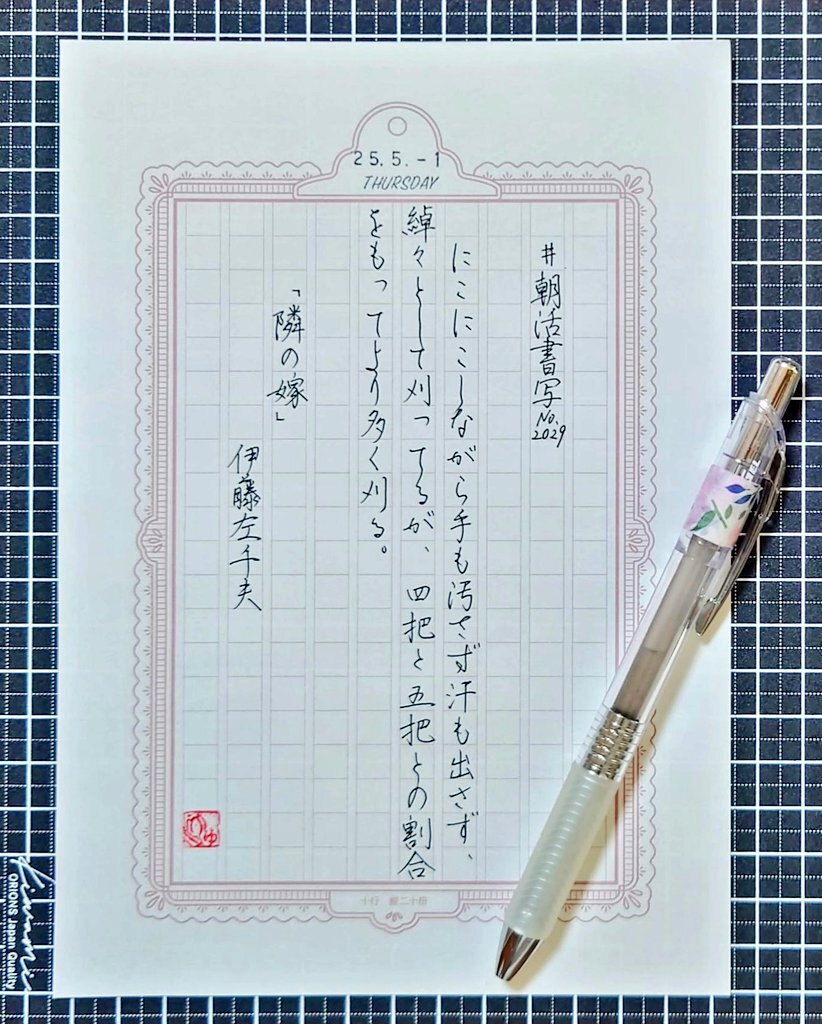 25.5.-1
THURSDAY
#朝活書写No.2029
にこにこしながら手も汚さず汗も出さず、
綽々として刈ってるが、四把と五把との割合
をもってより多く刈る。
「隣の嫁」
伊藤左千夫
十行 縦二十箇
ORIONS Japan Quality